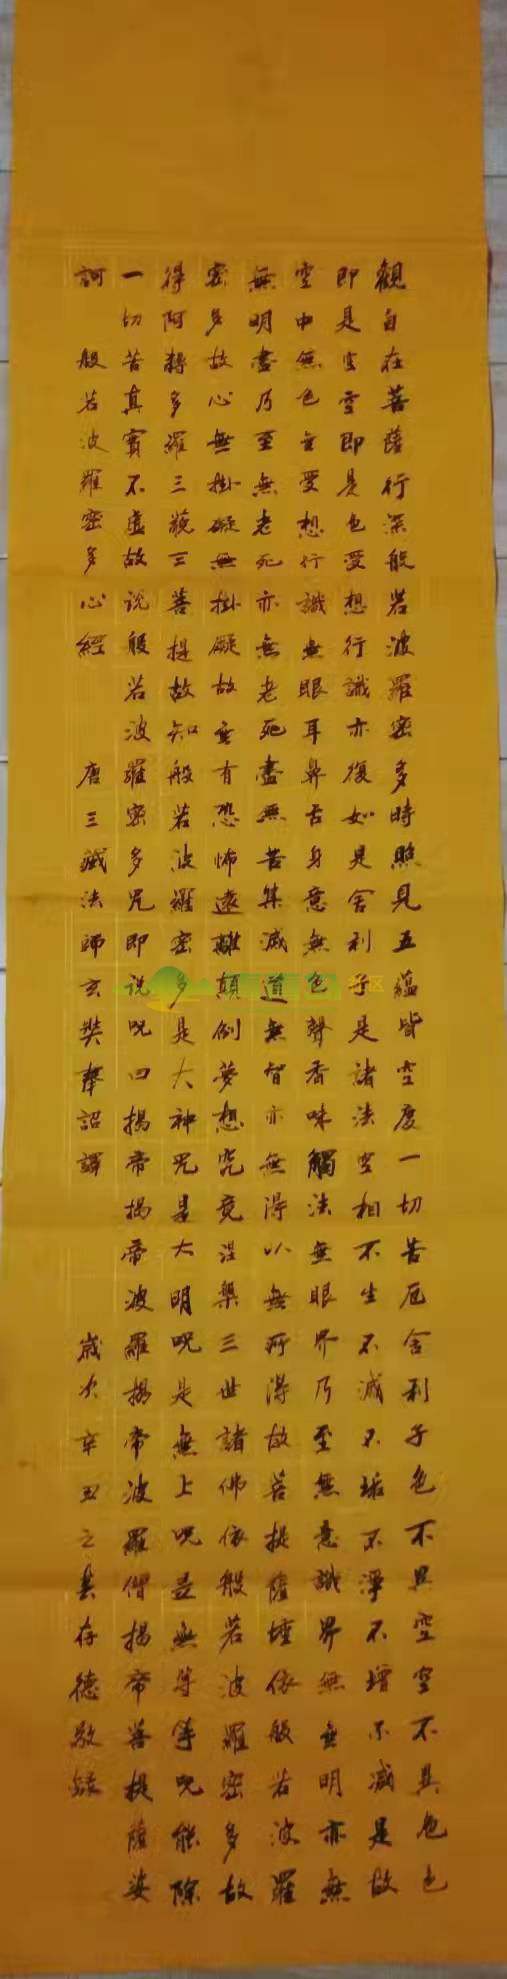 觀自在菩薩行深般若波羅密多時照見五蘊皆空度一切苦厄舍利子色不異空空不異色色
即是空空即是色受想行識亦復如是舍利子是諸法空相不生不滅不垢不淨不增不減是故
空中無色無受想行識無眼耳鼻舌身意無色聲香味觸法無眼界乃至無意識界無無明亦無
無明盡乃至無老死亦無老死盡無苦集滅道無智亦無得以無所得故菩提薩埵依般若波羅
密多故心無掛礙無掛礙故無有恐怖遠離顛倒夢想究竟涅槃三世諸佛依般若波羅密多故
得阿耨多羅三藐三菩提故知般若波羅密多是大神咒是大明咒是無上咒是無等等咒能除
一切苦真實不虛故說般若波羅密多咒即說咒曰揭帝揭帝波羅揭帝波羅僧揭帝菩提薩婆
訶 般若波羅密多心經 唐三藏法師玄奘奉詔譯 歲次辛丑之春存德敬錄